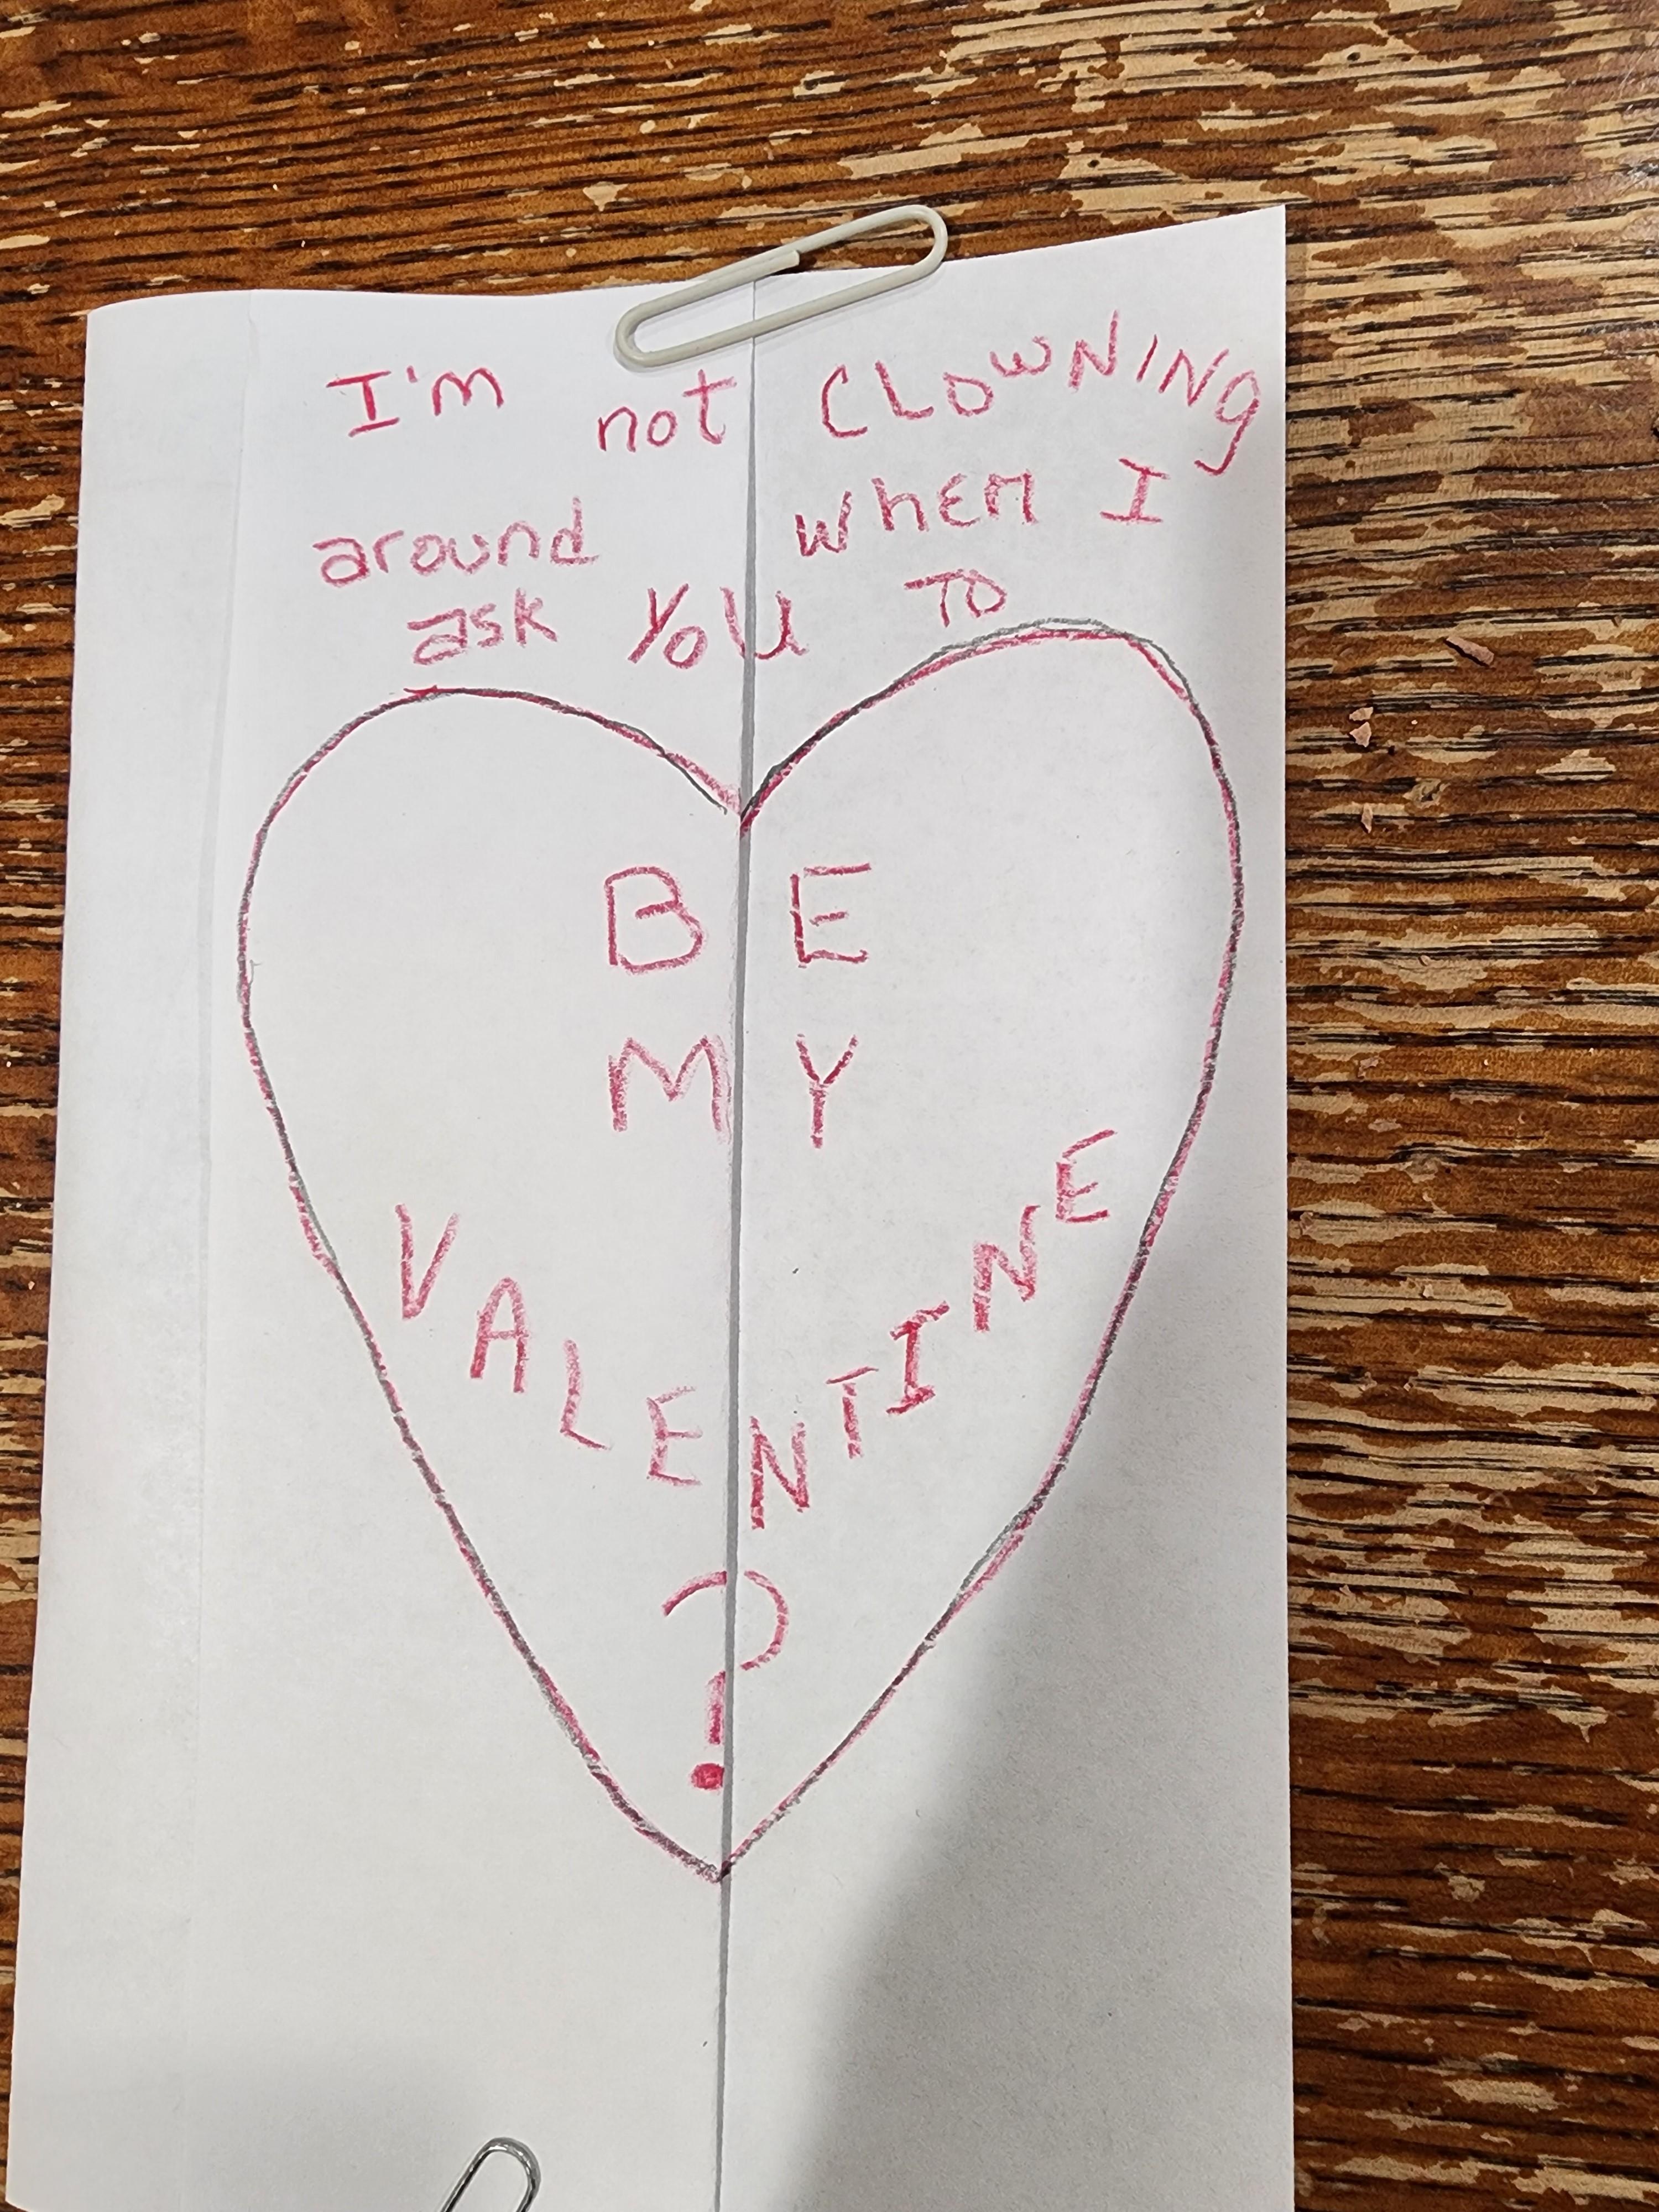 I'm not CLOWNINg
around whEn I
ask YOU TO
BE
MY
VALENTINE
?